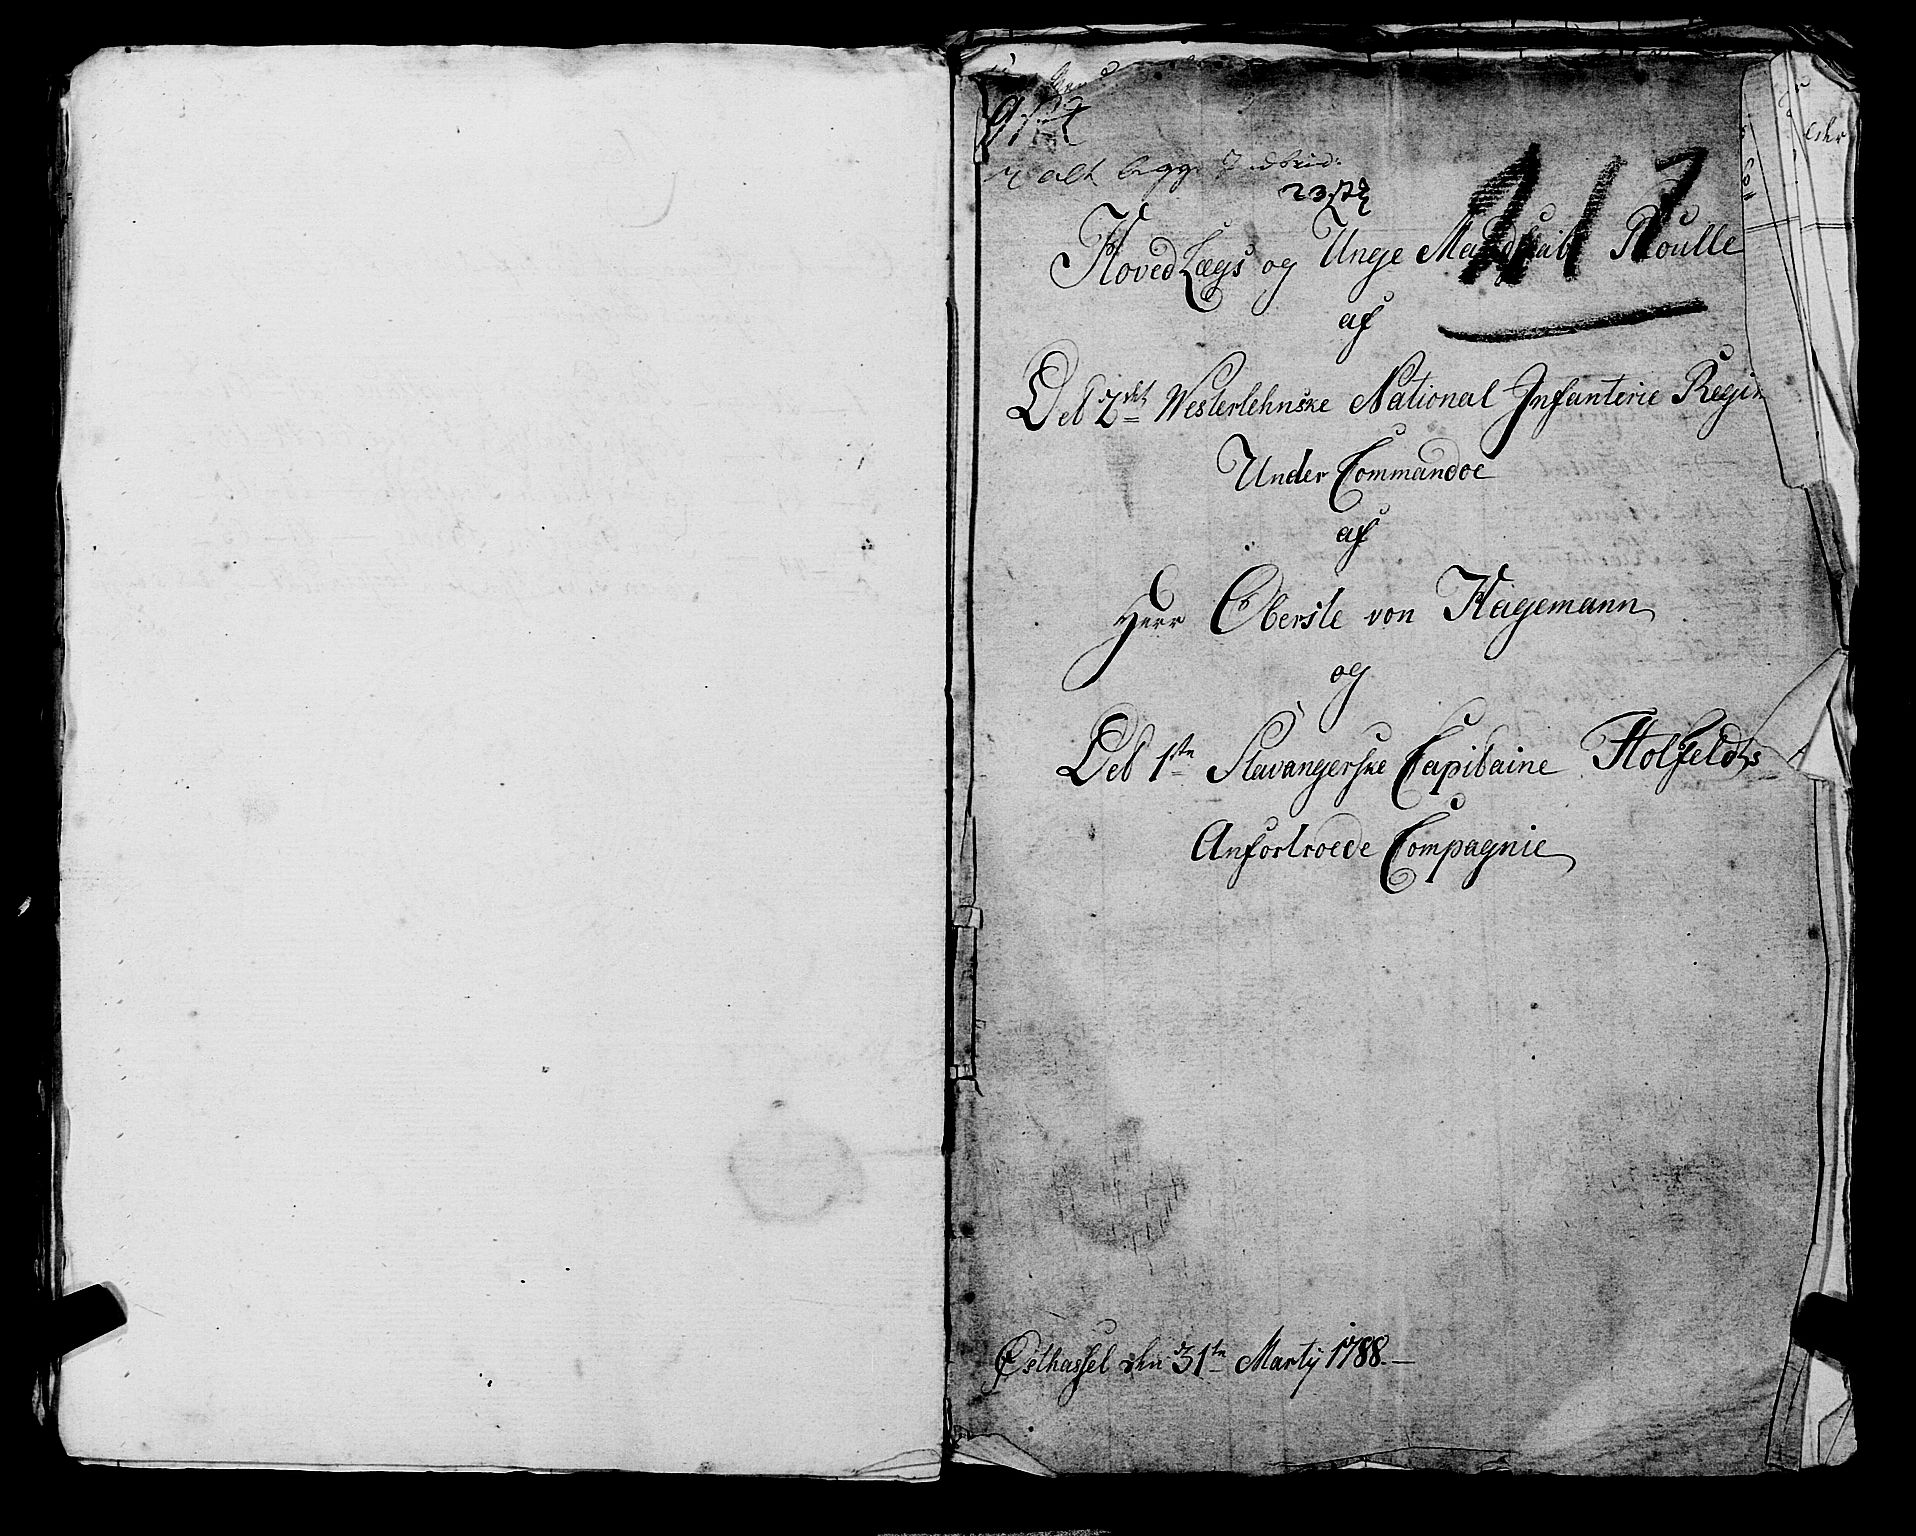 i alt begge
217
Hoved Lægs og Unge Mandskabs Roulle
af
Det 2det Westerlehnske National Infanterie Regim
Under Commandoe
af
Herr Oberste von Hagemann
og
Det 1ste Stavangerske Capitaine Holfeldts
Anfortroede Compagnie
Østhassel den 31te Martÿ 1788.